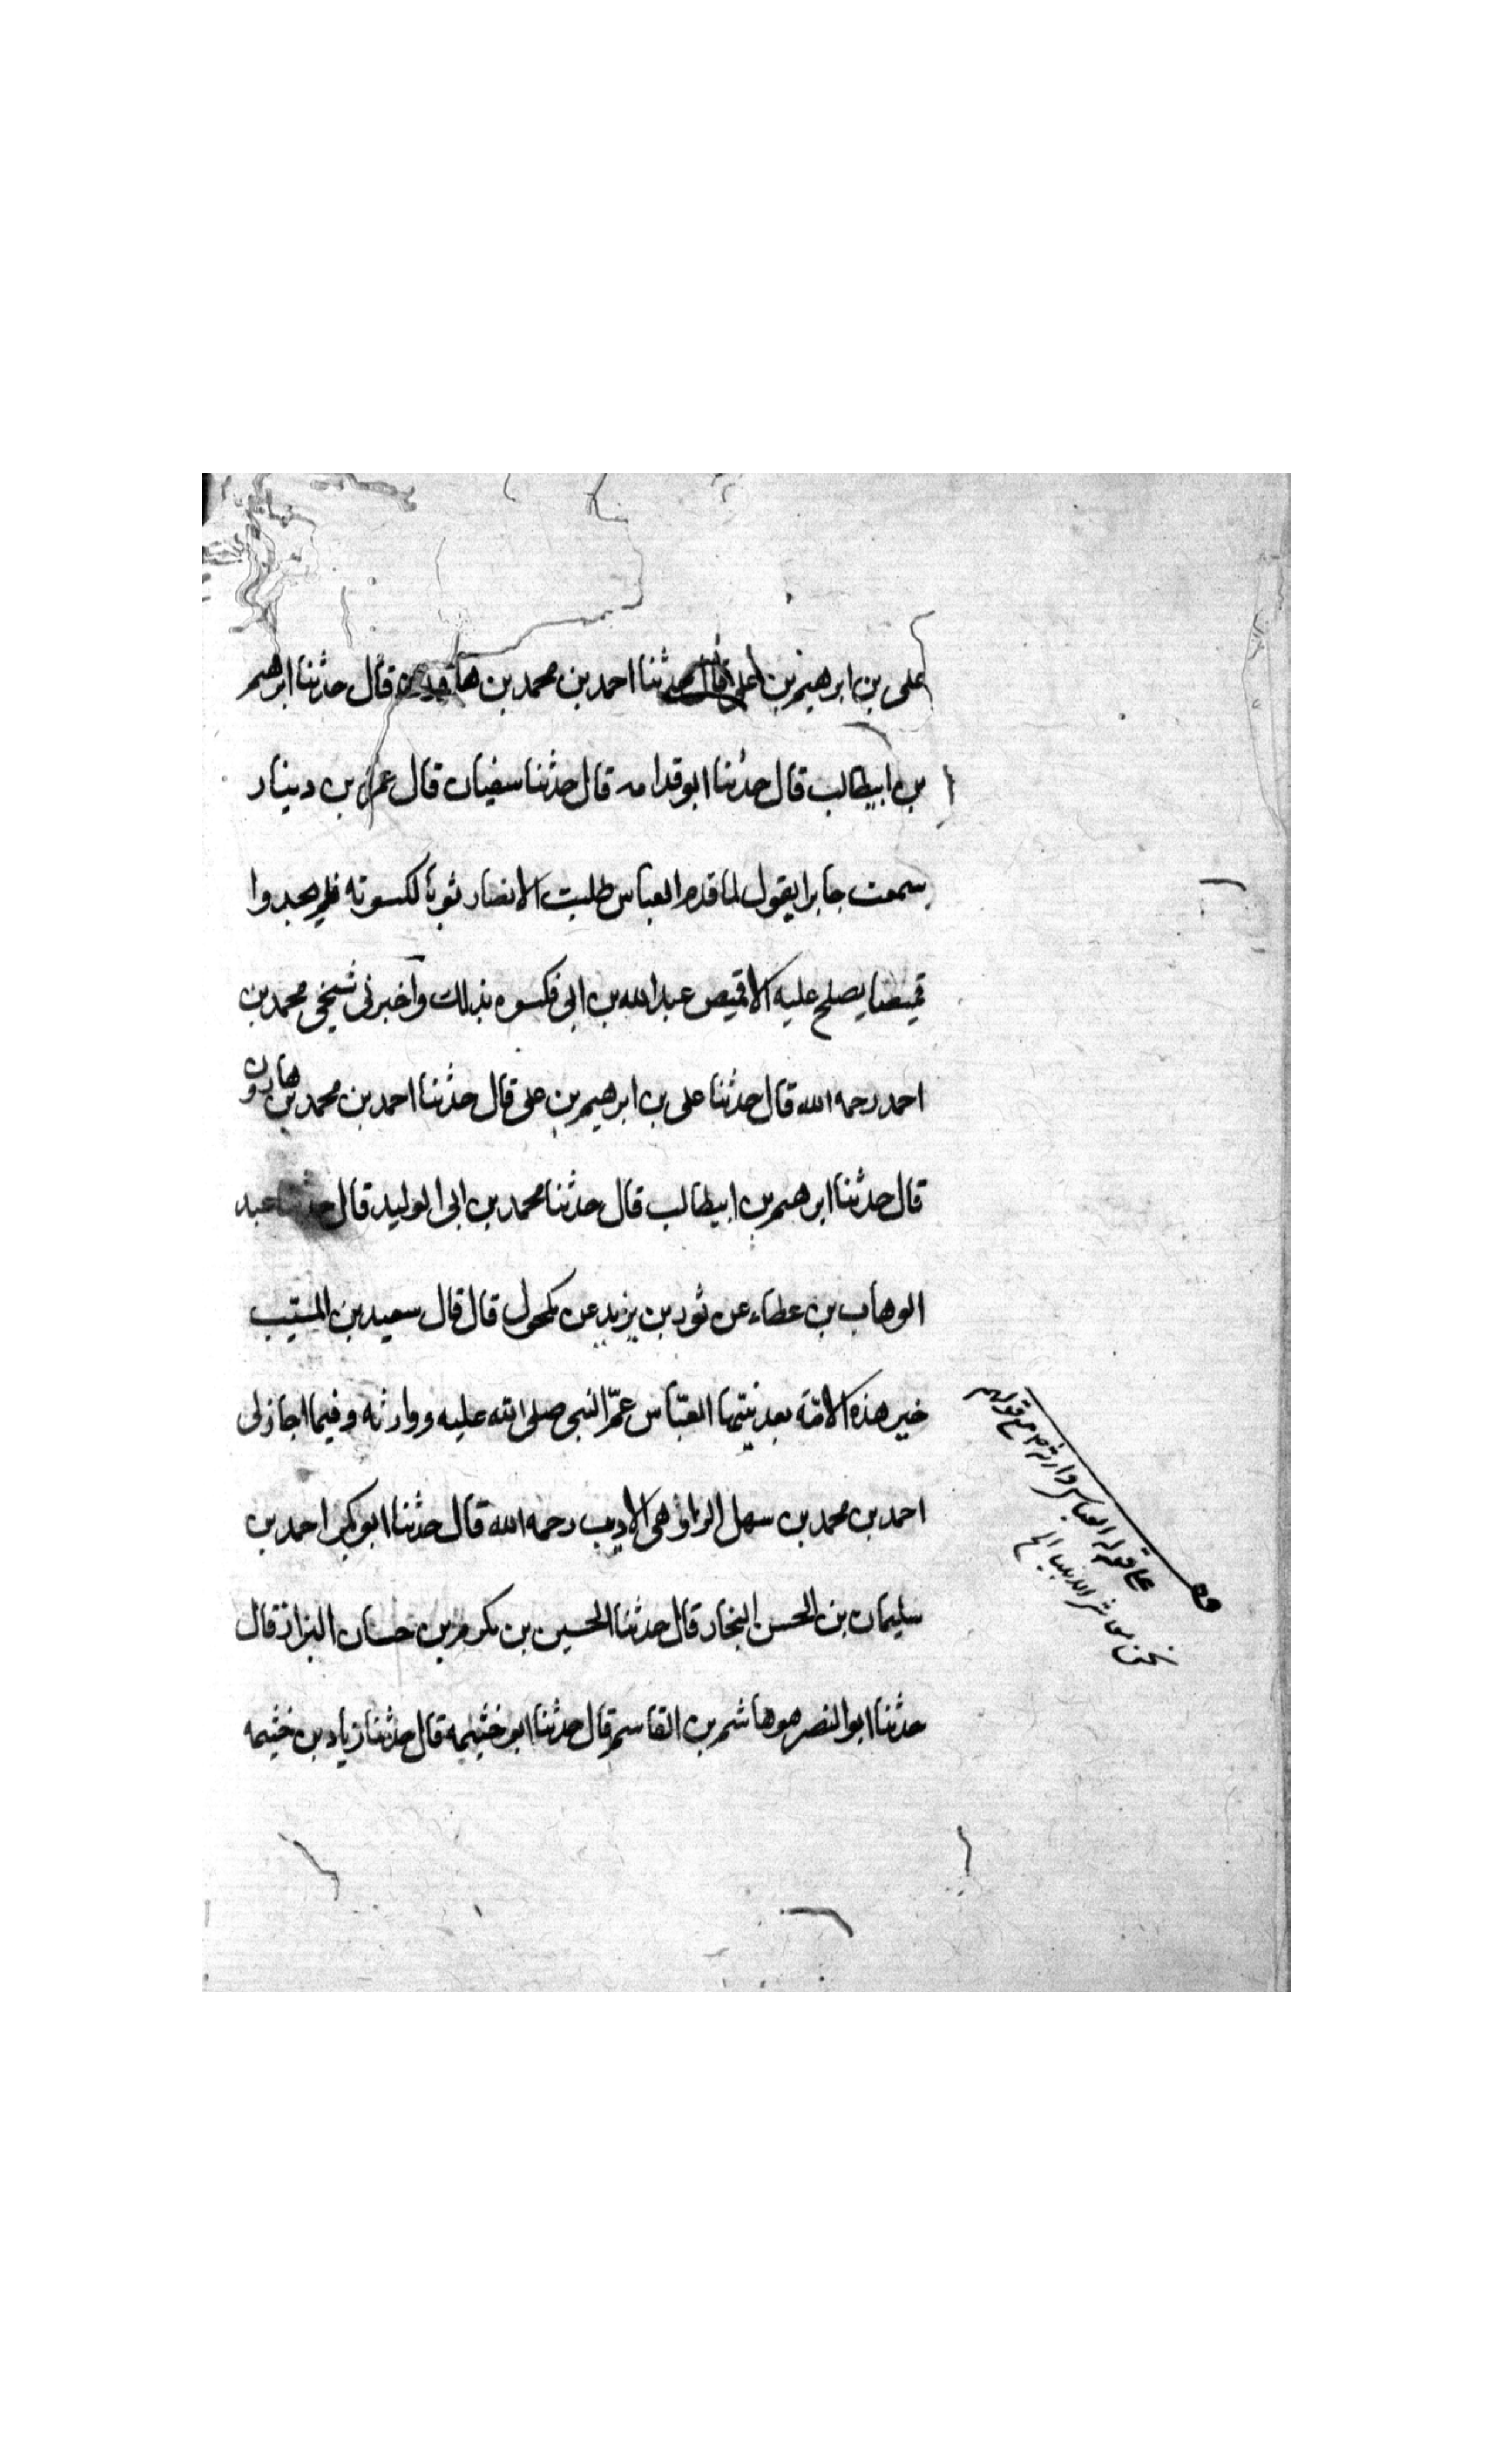 على بن ابرهيم بن على قال حدثنا احمد بن محمد بن قال حدثنا ابرهيم
بن ابيطالب قال حدثنا ابو قدامه قال حدثنا سفيان قال عمرو بن دينار
سمعت جابرا يقول لما قدم العباس طلبت الانصار ثوبا لكسوته فلم يجدوا
قميصا يصلح عليه الا قميص عبدالله بن ابى فكسوه بذلك واخبرنى شيخى محمد بن
احمد رحمه الله قال حدثنا على بن ابرهيم بن على قال حدثنا احمد بن محمد بن هارون
قال حدثنا ابرهيم بن ابيطالب قال حدثنا محمد بن ابى الوليد قال حدثنا عبد
الوهاب بن عطاء عن ثور بن يزيد عن مكحول قال قال سعيد بن المسيّب
خير هذه الامّة بعد نبيّها العبّاس عمّ النبى صلى الله عليه ووارثه وفيما اجاز لى
احمد بن محمد بن سهل الراوهى الاديب رحمه الله قال حدثنا ابو بكر احمد بن
سليمان بن الحسن النجار قال حدثنا الحسين بن مكرم بن حسان البزاز قال
حدثنا ابو النصر هو هاشم بن القاسم قال حدثنا ابو خثيمه قال حدثنا زياد بن خثيمه
قوله العباس وارثه مع قولهم
نحن معاشر الانبياء الخ